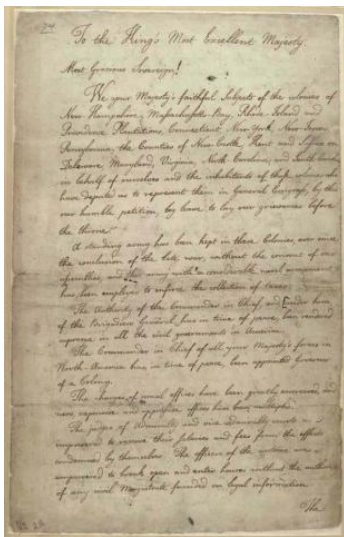 24
To the King's Most Excellent Majesty.
Most Gracious Sovereign!
We your Majesty's faithful Subjects of the colonies of
New Hampshire, Massachusetts Bay, Rhode Island and
Providence Plantations, Connecticut, New York, New Jersey,
Pennsylvania, the Counties of New Castle, Kent and Sussex on
Delaware, Maryland, Virginia, North Carolina, and South Carolina,
in behalf of ourselves and the inhabitants of these colonies who
have deputed us to represent them in General Congress, by this
our humble petition, beg leave to lay our grievances before
the throne.
A standing army has been kept in these Colonies, ever since
the conclusion of the late war, without the consent of our
assemblies; and this army with a considerable naval armament
has been employed to enforce the collection of taxes.
The Authority of the Commander in Chief, and under him
of the Brigadiers General has in time of peace, been rendered
supreme in all the civil governments in America.
The Commander in Chief of all your Majesty's forces in
North America has in time of peace, been appointed Governor
of a Colony.
The charges of usual offices have been greatly increased and
new, expensive and oppressive offices have been multiplied.
The judges of Admiralty and vice Admiralty courts are
empowered to receive their salaries and fees from the effects
condemned by themselves. The officers of the customs are
empowered to break open and enter houses without the authority
of any civil Magistrate founded on legal information.
The